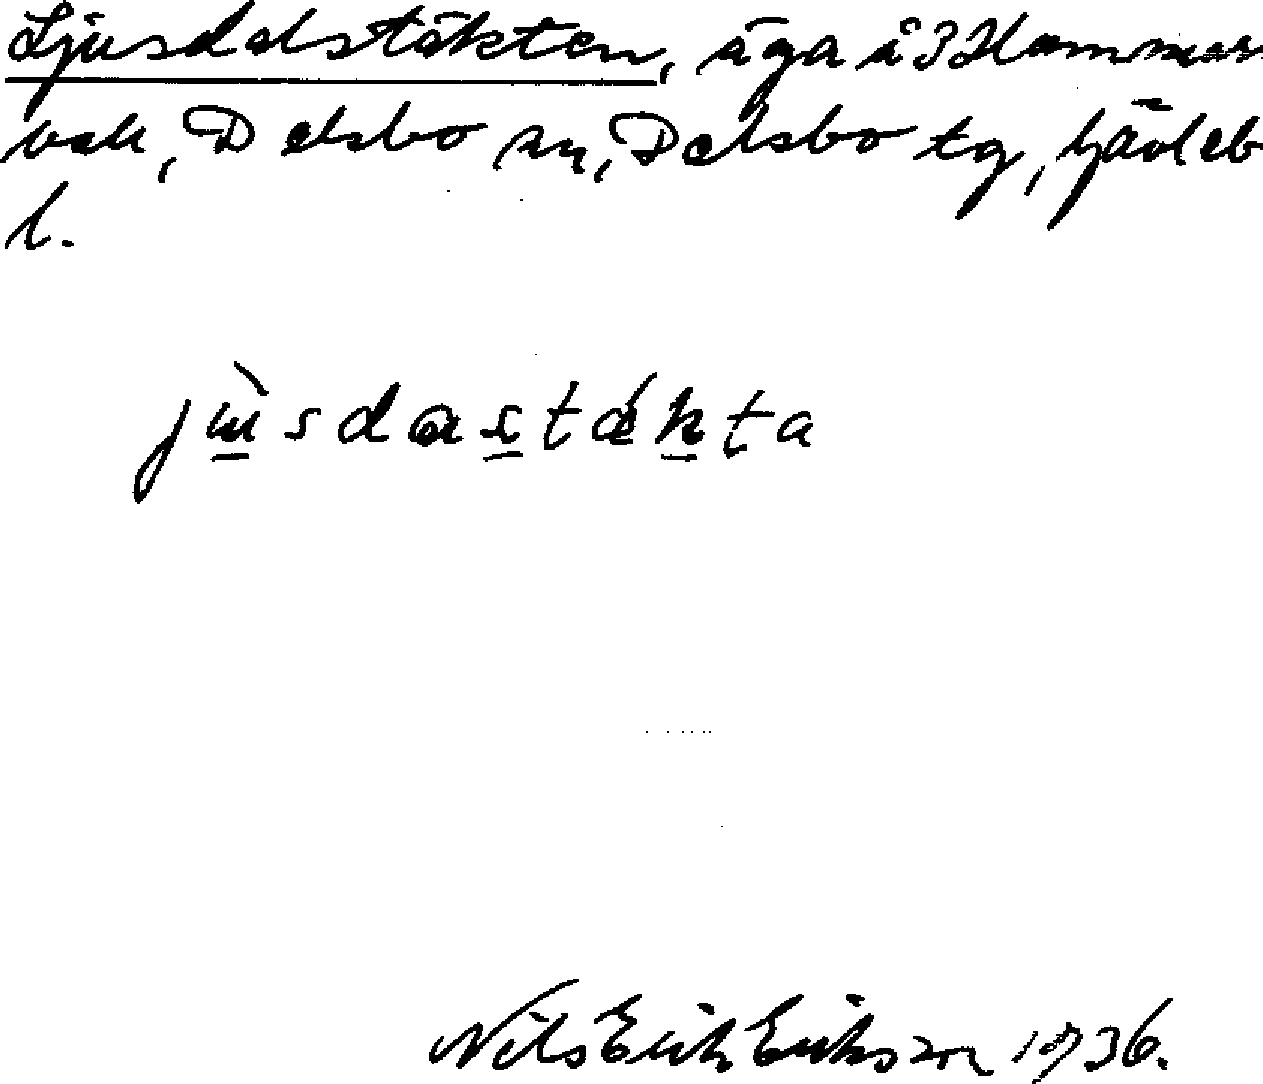 Ljusdalstäkten, äga å 3 Hammar
vall, Delsbo sn, Delsbo tg, Gävleb
l.
jùsdastákta
Nils Erik Erikson 1936.